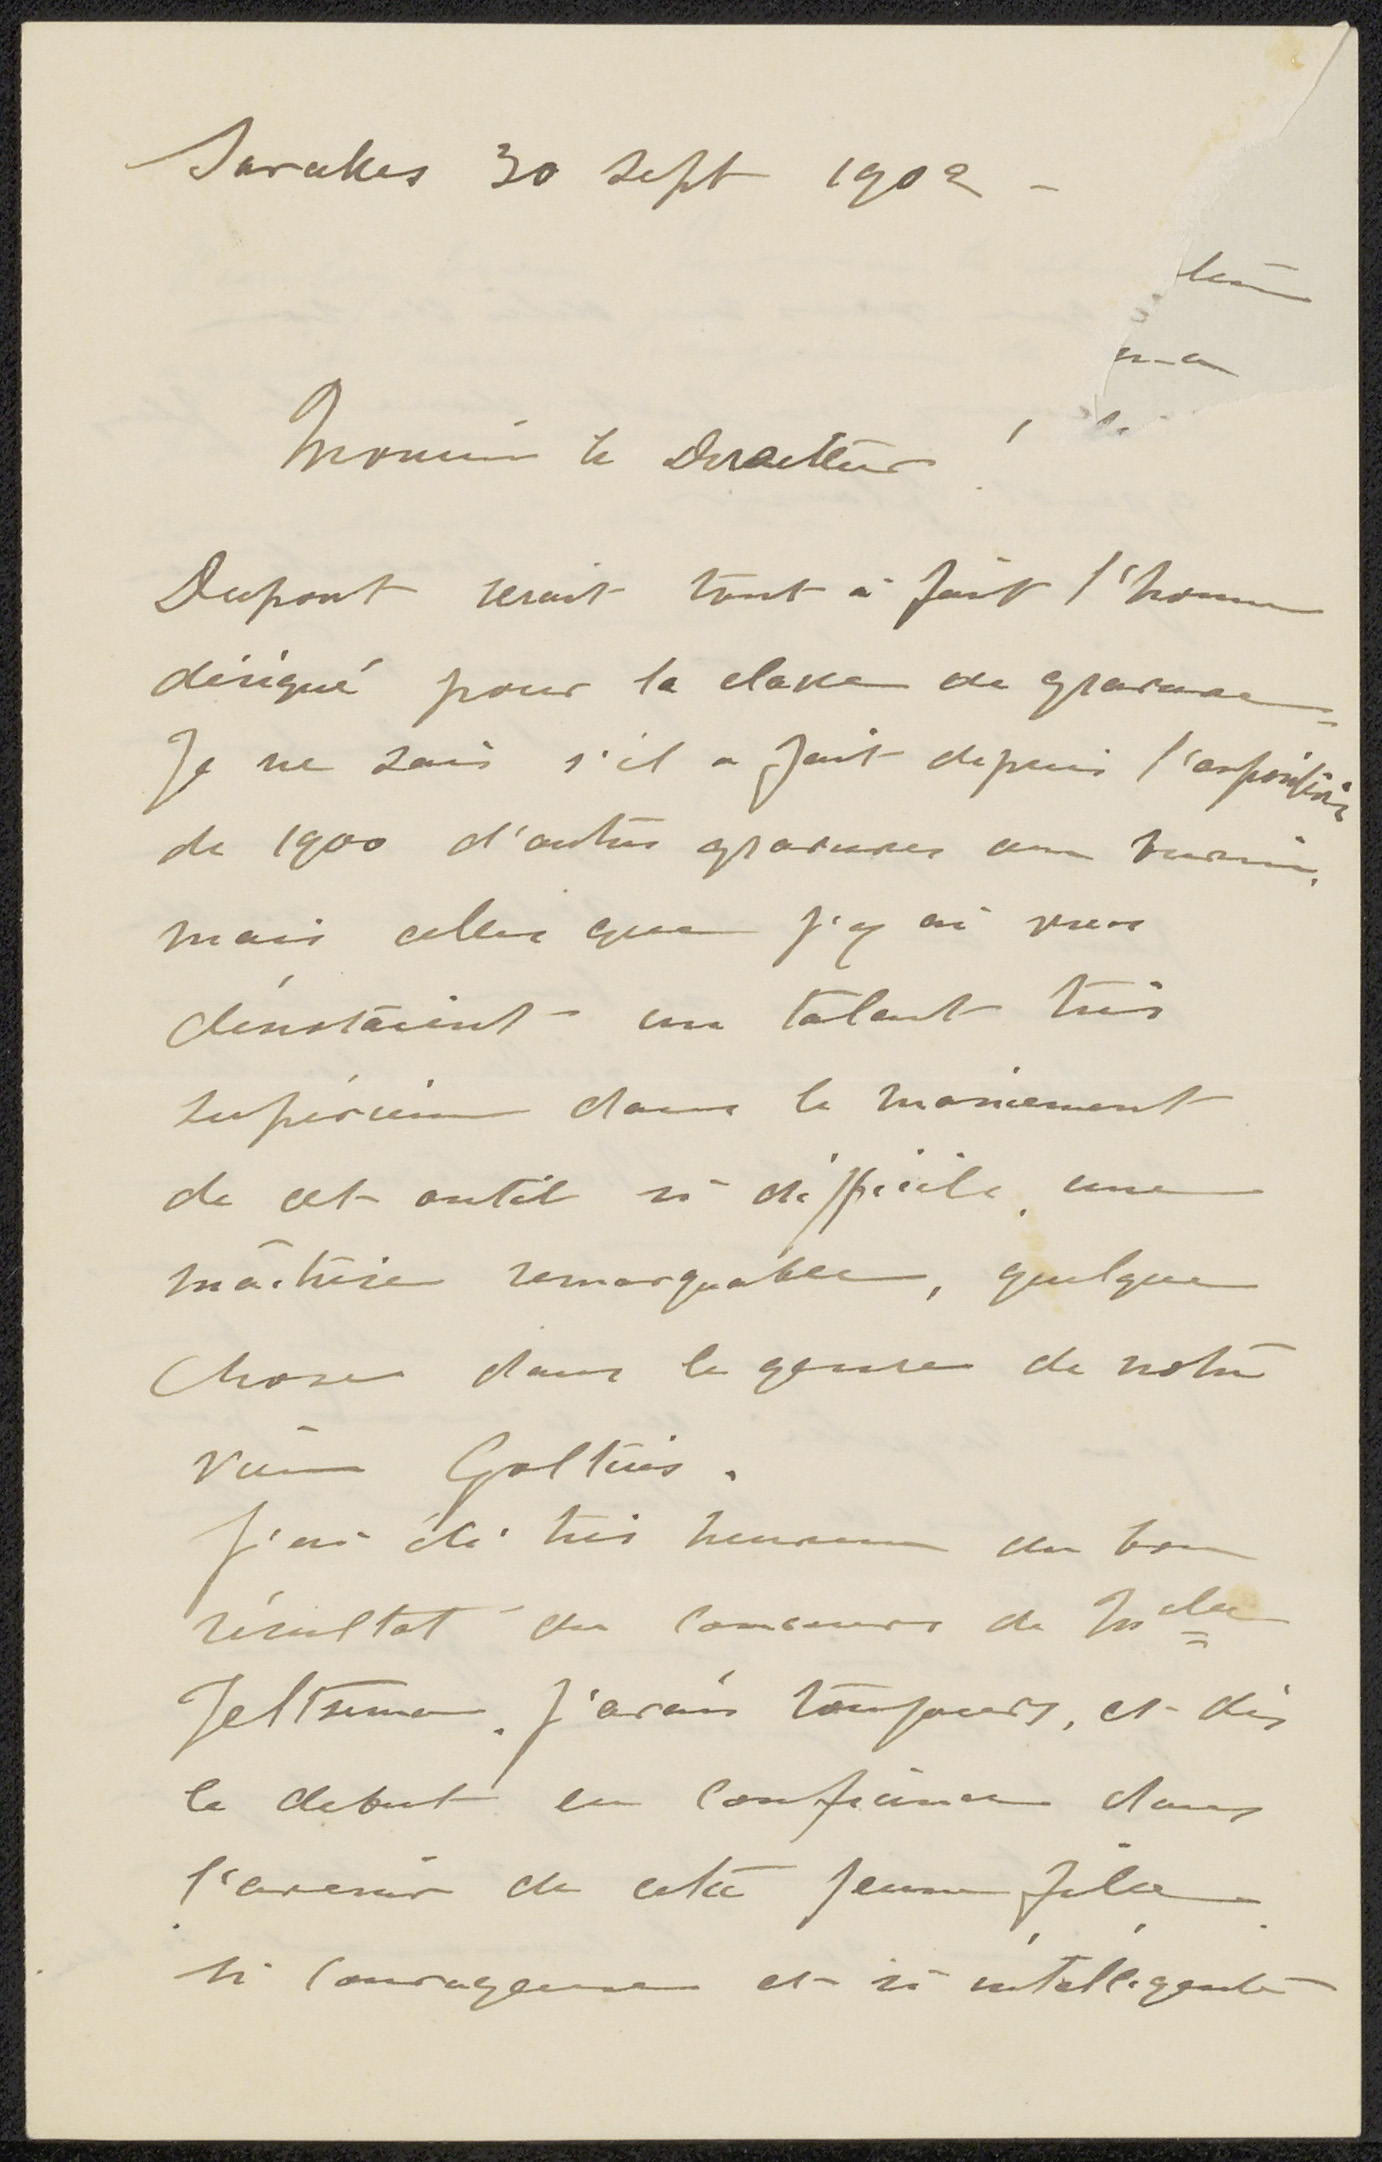 30 Sept 1902 -
Monsieur le Directeur !
Dupont serait tout à fait l'homme
désigné pour la classe de gravure =
Je ne sais s'il a fait depuis l'exposition
de 1900 d'autres gravures au burin,
mais celles que j'y ai vues
dénotaient un talent très
supérieur dans le maniement
de cet outil si difficile, une
maîtrise remarquable, quelque
chose dans le genre de notre
vieux Goltzius.
J'ai été très heureux du bon
résultat du concours de Mlle
Jeltsema. J'avais toujours, et dès
le debut eu confiance dans
l'avenir de cette jeune fille
si courageuse et si intelligente